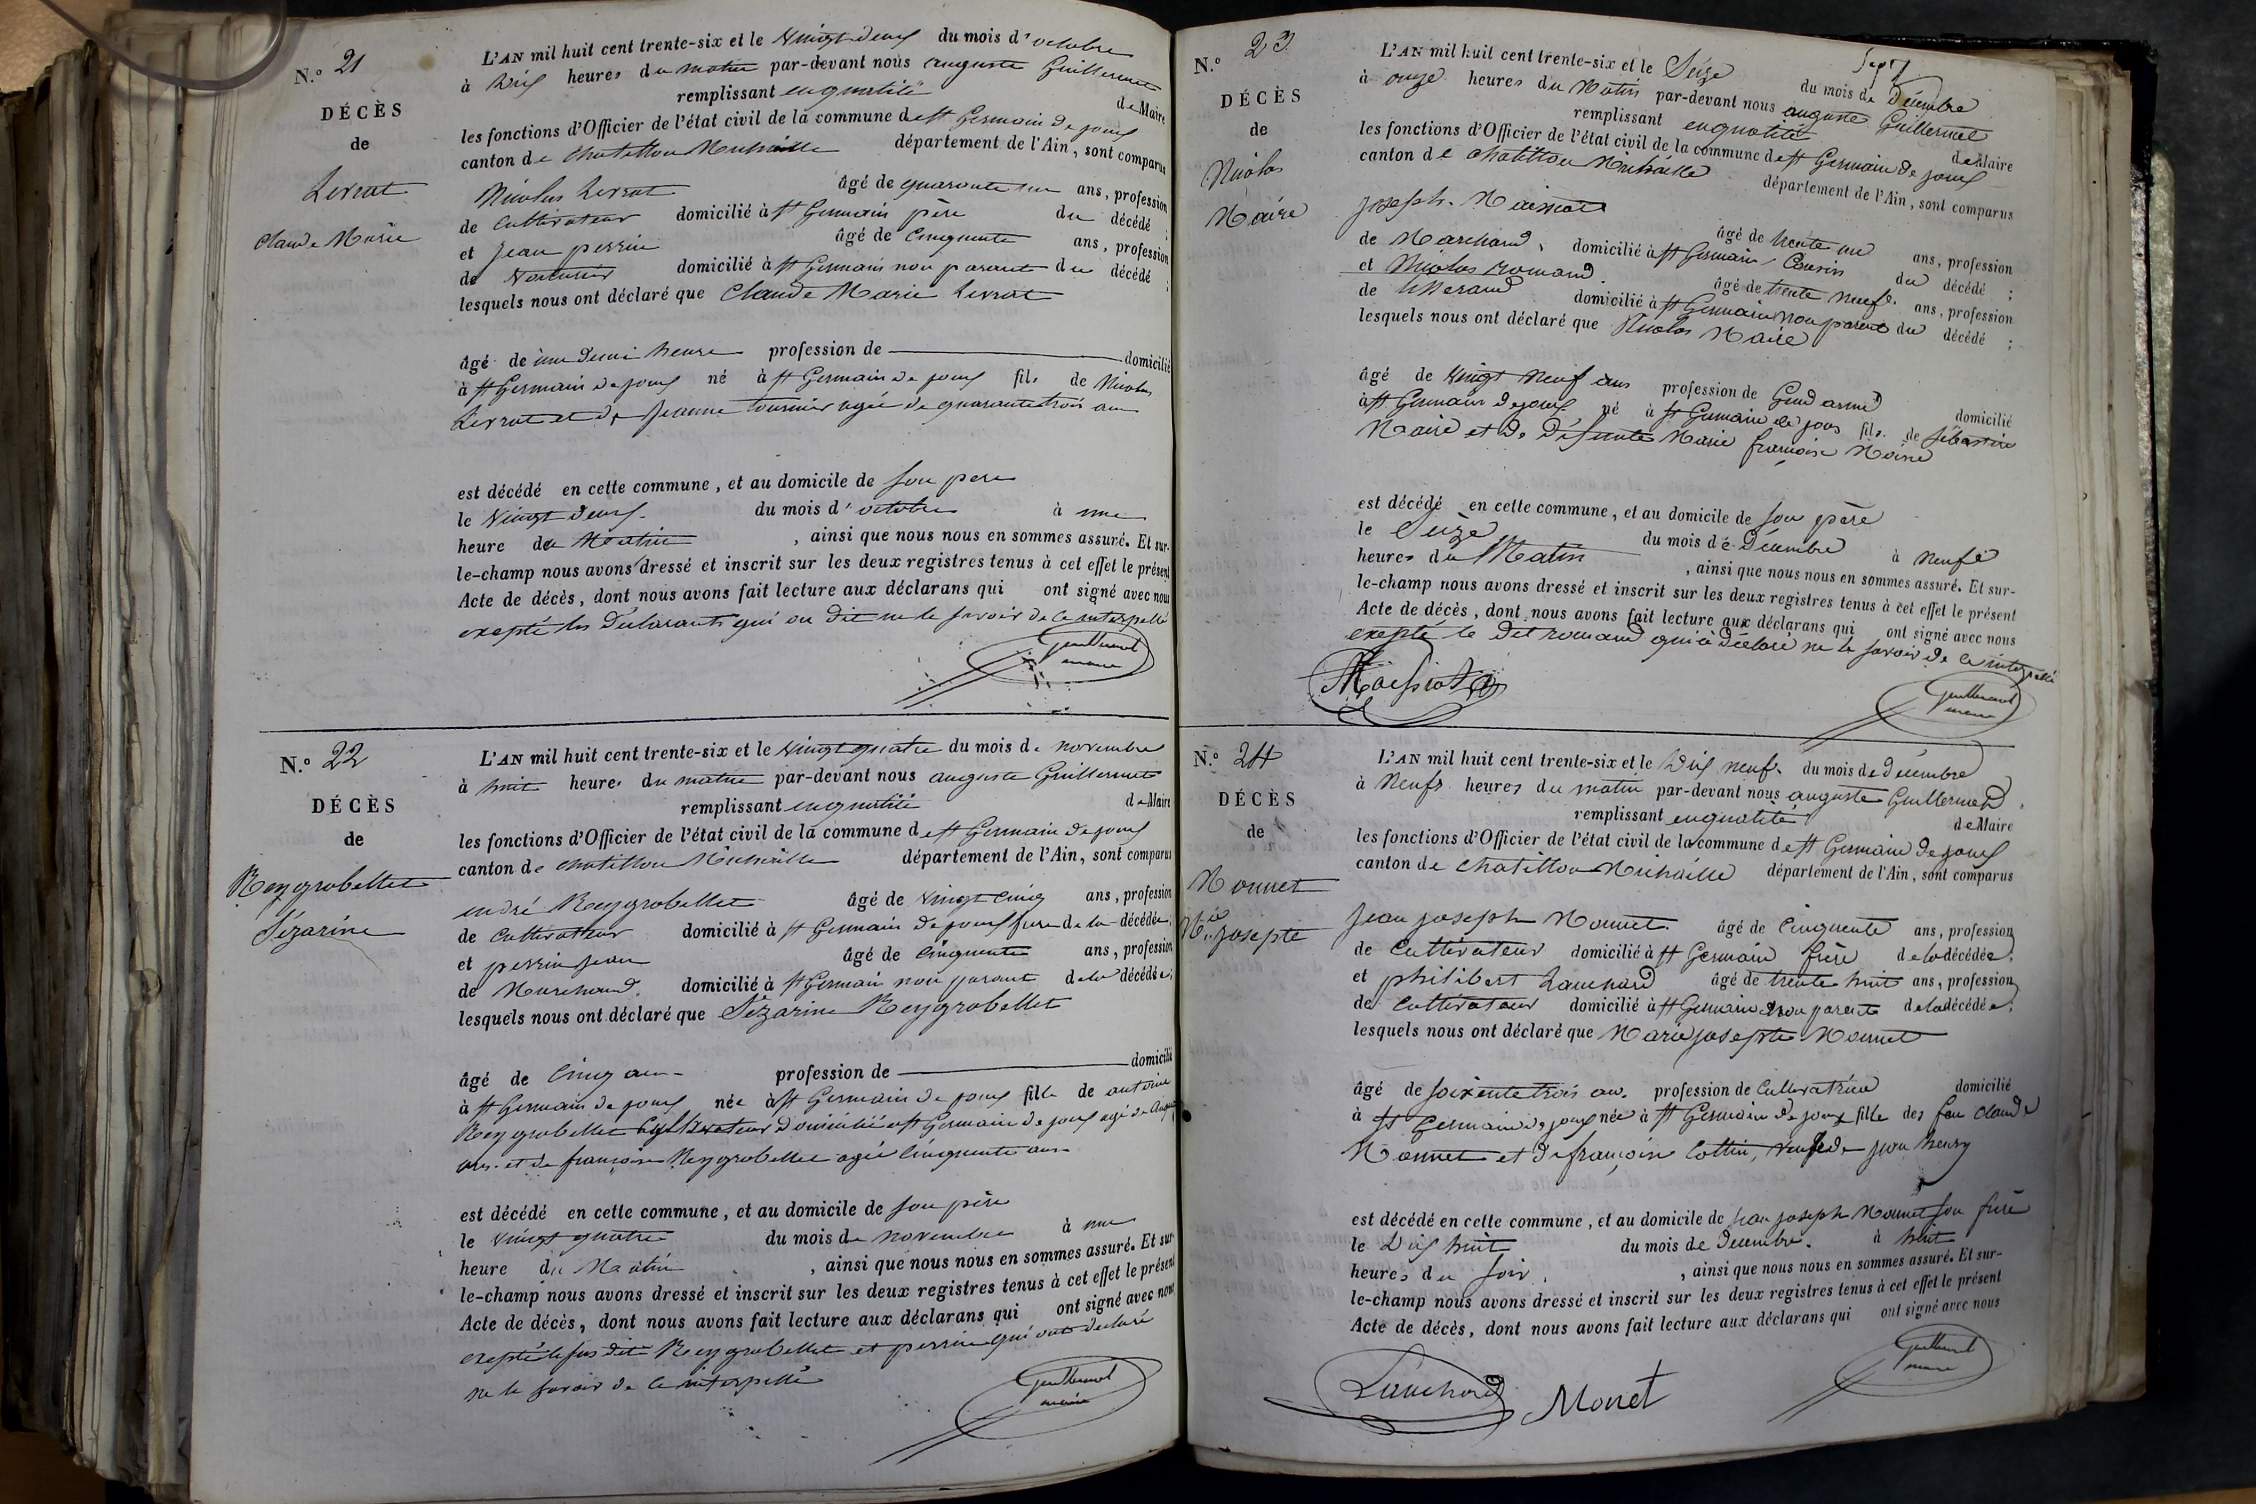 N.º 21
DÉCÈS
de
Levrat
Claude Marie
L'AN mil huit cent trente-six et le vingt deux du mois d'octobre
à dix heures du matin par-devant nous auguste Guillermet
remplissant en qualité de Maire
les fonctions d'Officier de l'état civil de la commune de st Germain de joux
canton de chatillon Michaille département de l'Ain, sont comparus
Nicolas Levrat âgé de quarante un ans, profession
de cultivateur domicilié à st Germain père du décédé ;
et jean perrin âgé de cinquante ans, profession
de domicilié à st Germain non parant du décédé ;
lesquels nous ont déclaré que Claude Marie Levrat
âgé de une demi heure profession de domicilié
à st Germain de joux né à st Germain de joux fils de Nicolas
Levrat et de Jeanne tournier agée de quarante trois ans
est décédé en cette commune, et au domicile de son pere
le vingt deux du mois d'octobre à une
heure du Matin , ainsi que nous nous en sommes assuré. Et sur-
le-champ nous avons dressé et inscrit sur les deux registres tenus à cet effet le présent
Acte de décès, dont nous avons fait lecture aux déclarans qui ont signé avec nous
exepté les déclarants qui on dit ne le savoir de ce interpellé
Guillermet
maire
N.º 22
DÉCÈS
de
Reygrobellet
Sézarine
L'AN mil huit cent trente-six et le vingt quatre du mois de novembre
à huit heures du matin par-devant nous auguste Guillermet
remplissant en qualité de Maire
les fonctions d'Officier de l'état civil de la commune de st Germain de joux
canton de chatillon Michaille département de l'Ain, sont comparus
andré Reygrobellet âgé de vingt cinq ans, profession
de cultivateur domicilié à st Germain de joux frere de la décédée ;
et perrin jean âgé de cinquante ans, profession
de Marchand domicilié à st Germain non parant de la décédée ;
lesquels nous ont déclaré que Sézarine Reygrobellet
âgé de cinq ans profession de domicilié
à st Germain de joux née à st Germain de joux fille de antoine
Reygrobellet cultivateur domicilié a st Germain de joux agé de
ans et de françoise Reygrobellet agée cinquante ans
est décédé en cette commune, et au domicile de son père
le vingt quatre du mois de novembre à une
heure du Matin , ainsi que nous nous en sommes assuré. Et sur-
le-champ nous avons dressé et inscrit sur les deux registres tenus à cet effet le présent
Acte de décès, dont nous avons fait lecture aux déclarans qui ont signé avec nous
exepté le sus dit Reygrobellet et perrin qui ont declaré
ne le savoir de ce interpellé
Guillermet
maire
N.º 23
DÉCÈS
de
Nicolas
Maire
L'AN mil huit cent trente-six et le Seize du mois de Décembre
à onze heures du Matin par-devant nous auguste Guillermet
remplissant en qualité de Maire
les fonctions d'Officier de l'état civil de la commune de st Germain de joux
canton de chatillon Michaille département de l'Ain, sont comparus
joseph Maissiat âgé de trente un ans, profession
de Marchand domicilié à st Germain Cousin du décédé ;
et Nicolas romand âgé de trente neuf ans, profession
de tisserand domicilié à st Germain non parent du décédé ;
lesquels nous ont déclaré que Nicolas Maire
âgé de vingt neuf ans profession de Gendarme domicilié
à st Germain de joux né à st Germain de joux fils de sébastien
Maire et de défunte Marie françoise Moine
est décédé en cette commune, et au domicile de son père
le Seize du mois de Décembre à neuf
heures du Matin , ainsi que nous nous en sommes assuré. Et sur-
le-champ nous avons dressé et inscrit sur les deux registres tenus à cet effet le présent
Acte de décès, dont nous avons fait lecture aux déclarans qui ont signé avec nous
exepté le dit romand qui à déclaré ne le savoir de ce interpellé
Maissiat
Guillermet
maire
N.º 24
DÉCÈS
de
Monnet
M.ie josepte
L'AN mil huit cent trente-six et le Dix neuf du mois de Décembre
à Neufs heures du matin par-devant nous auguste Guillermet
remplissant en qualité de Maire
les fonctions d'Officier de l'état civil de la commune de st Germain de joux
canton de chatillon Michaille département de l'Ain, sont comparus
Jean joseph Monnet âgé de cinquente ans, profession
de cultivateur domicilié à st Germain frère de la décédée ;
et philibert Lanchard âgé de trente huit ans, profession
de cultivateur domicilié à st Germain non parent de la décédée ;
lesquels nous ont déclaré que Marie josepte Monnet
âgé de soixente trois ans profession de Cultivatrice domicilié
à st Germain de joux née à st Germain de joux fille des feu claude
Monnet et de françoise Cottin, veuve de jean henry
est décédé en cette commune, et au domicile de jean joseph Monnet son frère
le Dix huit du mois de Décembre à huit
heures du soir , ainsi que nous nous en sommes assuré. Et sur-
le-champ nous avons dressé et inscrit sur les deux registres tenus à cet effet le présent
Acte de décès, dont nous avons fait lecture aux déclarans qui ont signé avec nous
Lanchard Monet
Guillermet
maire